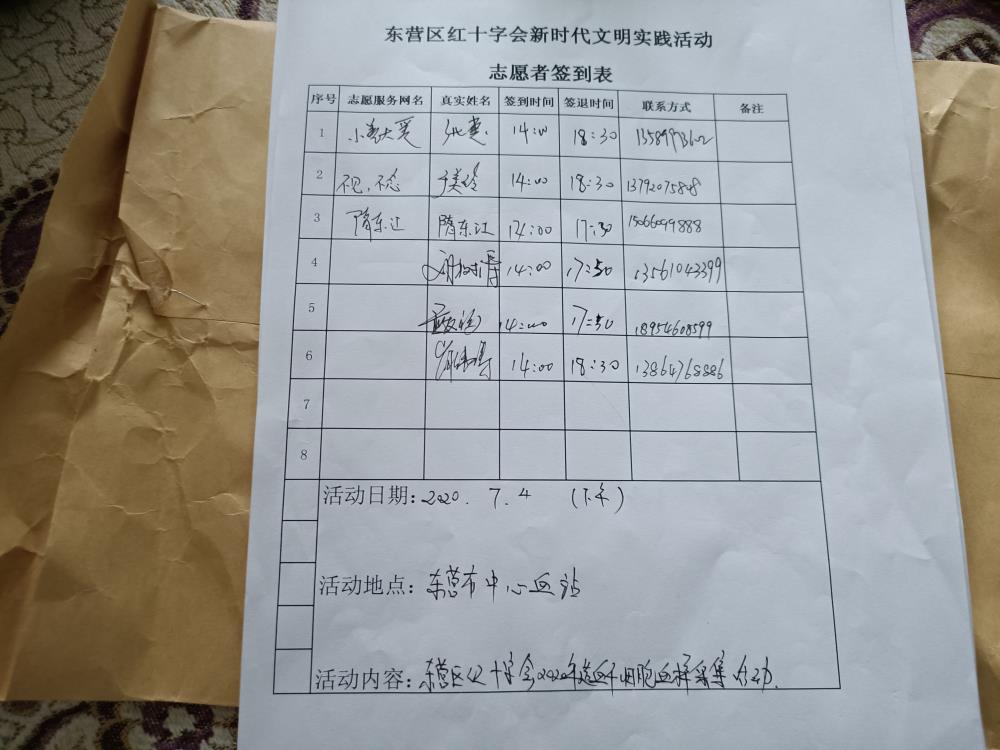 东营区红十字会新时代文明实践活动
志愿者签到表
序号 志愿服务网名 真实姓名 签到时间 签退时间 联系方式 备注
1 14:00 18:30
2 14:00 18:30 13792075808
3 隋东江 隋东江 14:00 17:30 15066099888
4 14:00 17:50 13561043399
5 14:00 17:50 18954608599
6 14:00 18:30 13864768886
7
8
活动日期:2020.7.4 (下午)
活动地点:东营市中心血站
活动内容:东营区红十字会2020年造血干细胞血样采集活动.